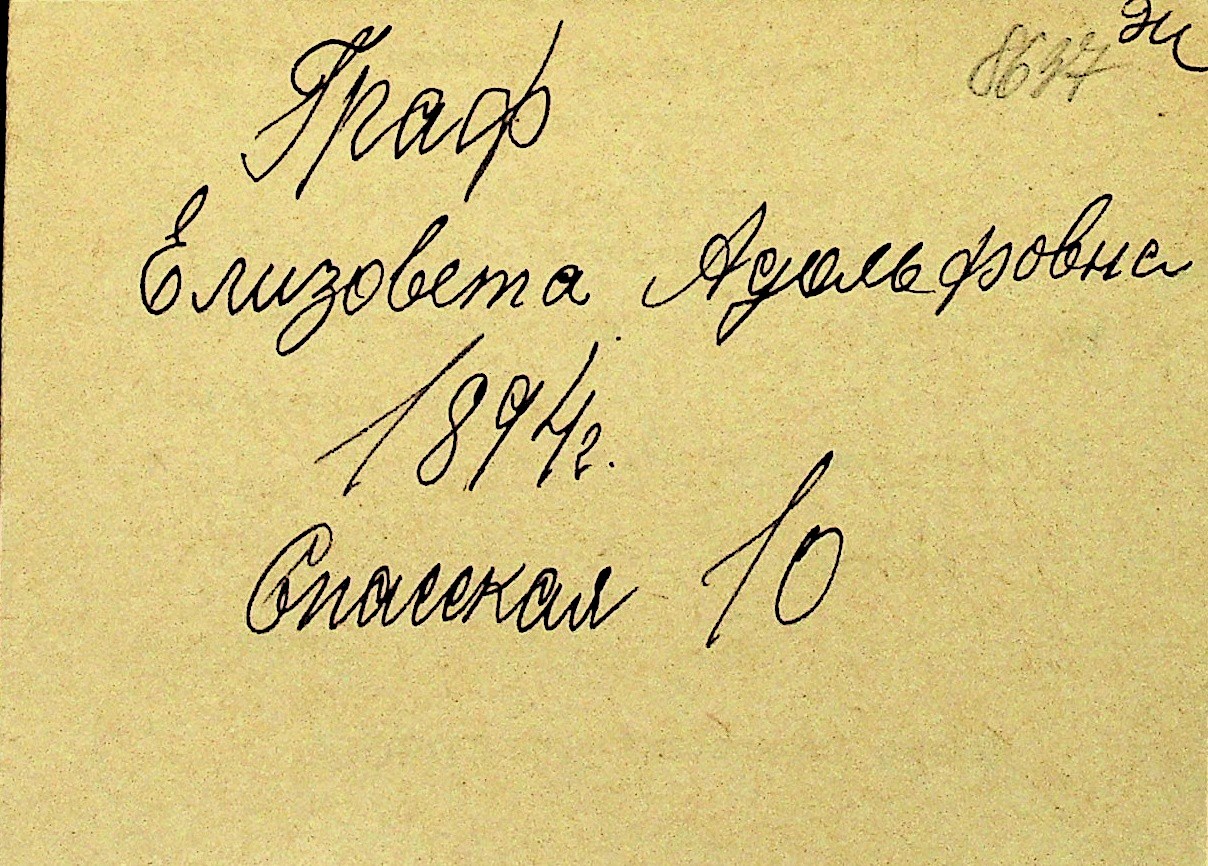 8637 эк
Граф
Елизовета Адольфовна
1894 г.
Спасская 10